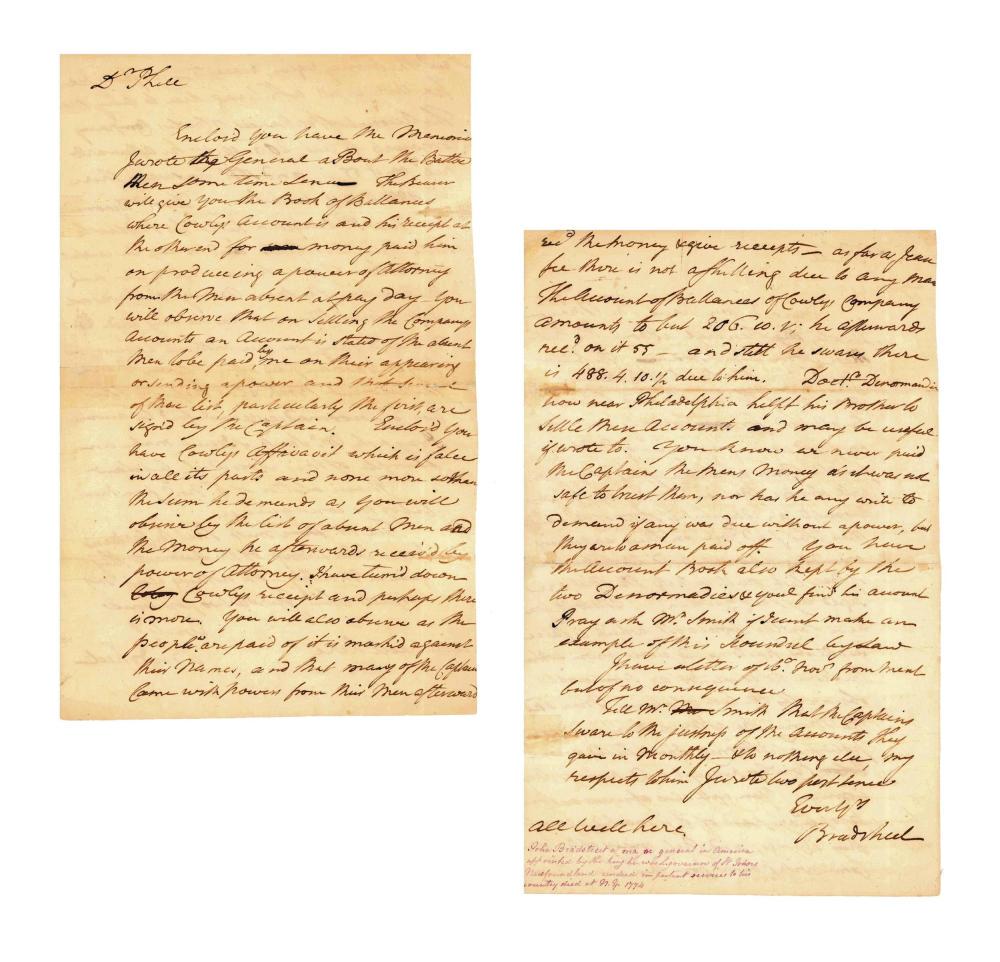 Dr Phill
Enclosd you have the Memorial
I wrote the General a Bout the Battoe
Men some time sence The Bearer
will give you the Book of Ballances
where Cowlys Account is and his receipt at
the other end for money paid him
on produceing a power of Attorney
from the Men absent at pay day - You
will observe that on Setling the Companys
Accounts an Account is stated of the absent
Men to be paid by me on their appearing
or sending a power and that some
of these list, particularly the first, are
signd by the Captain. Enclosd you
have Cowlys Affivavit which is false
in all its parts and none more so than
the sum he demands as you will
observe by the list of absent Men and
the Money he afterwards receivd by
power of Attorney. I have turnd down
Cowlys receipt and perhaps there
is more. You will also observe as the
people are paid of it is markd against
their Names, and that many of the Captains
Came with powers from their Men afterward
recd the Money & give receipts - as far as I can
see there is not a shilling due to any man
The Account of Ballances of Cowlys Company
amounts to but 206.10. he afterwards
recd on it 55 - and still he swares there
is 488.4.10½ due to him. Doctr Denormandie
now near Philadelphia helpt his Brother to
settle these Accounts and may be useful
if wrote to. You know we never paid
the Captains the Mens Money as it was not
safe to trust them, nor has he any write to
demand if any was due without a power, but
they are to a man paid off. You have
the Account Book also kept by the
two Denormadies & youl find his account
Pray ask Mr Smith if I cant make an
example of this Scoundrel by law
I have a letter of 16th Novr from
but of no consequence
Tell Mr Smith that the Captains
sware to the justness of the Accounts they
gave in Monthly - & to nothing else, my
respects to him I wrote two post sence
Ever Yrs
Bradstreet
all well here
John Bradstreet a maj or general in America
appointed by the king he was governor of St Johns
Newfoundland rendered important services to his
country died at N.Y. 1774